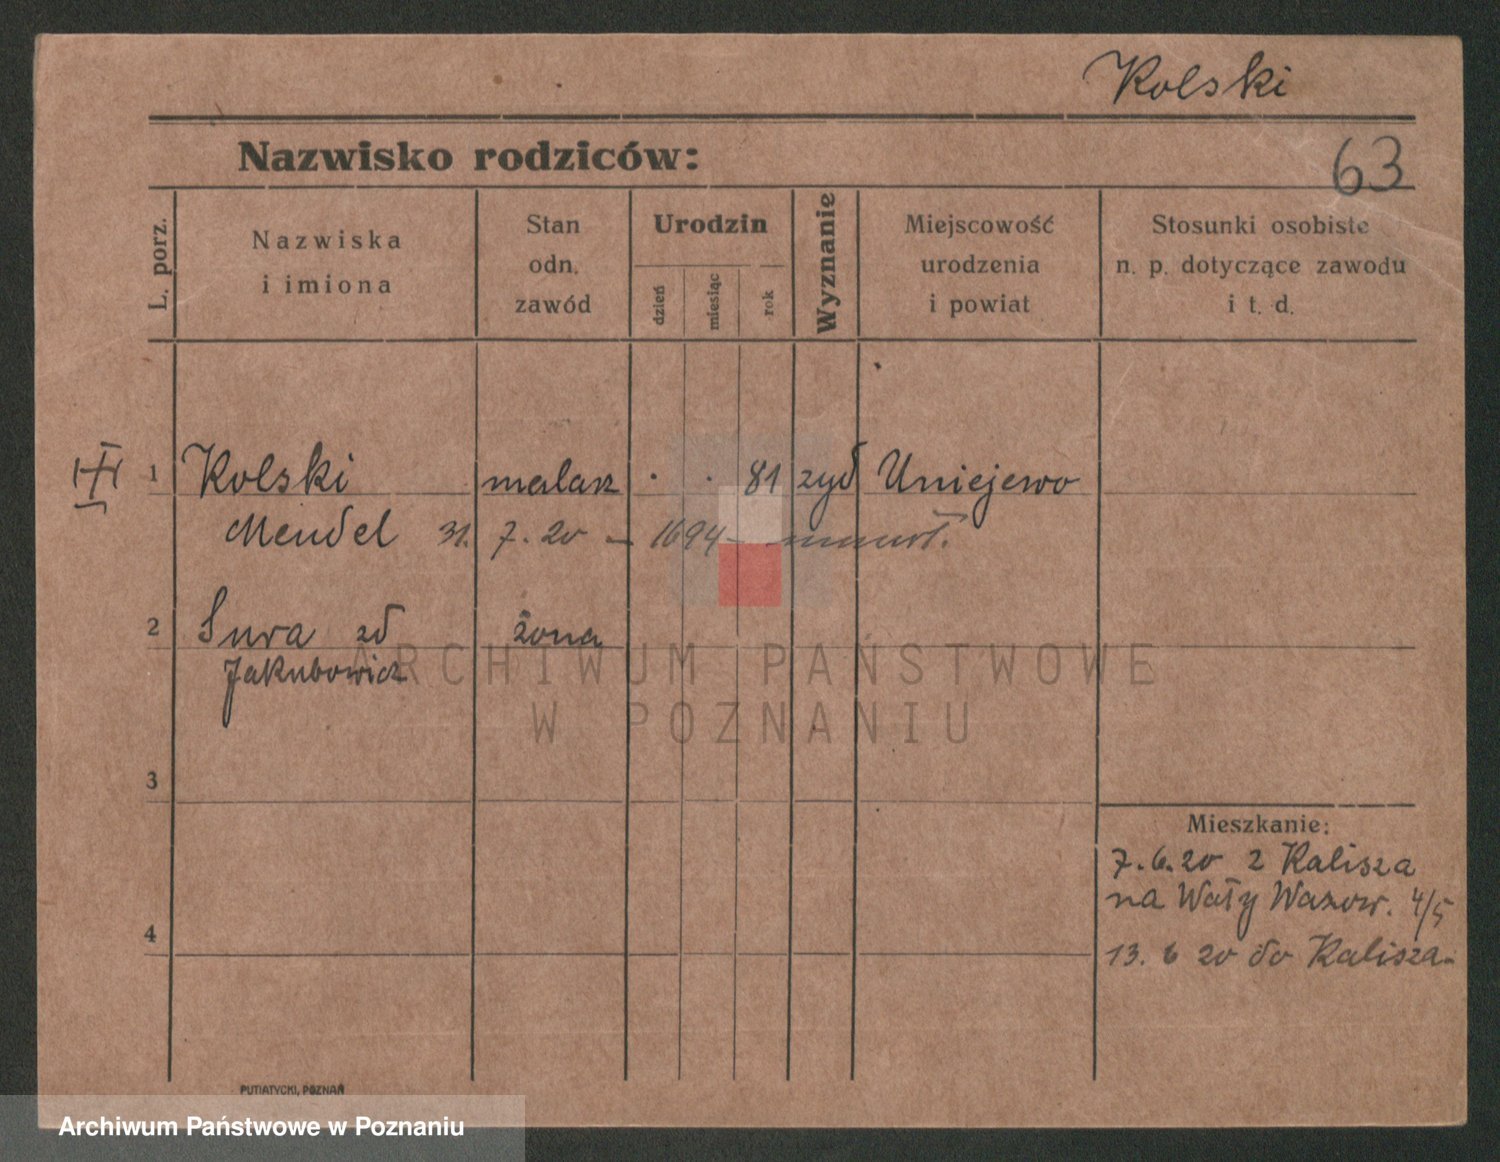 Kolski
Nazwisko rodziców:
63
L. porz.
Nazwiska
i imiona
Stan
odn.
zawód
Urodzin
dzień
miesiąc
rok
Wyznanie
Miejscowość
urodzenia
i powiat
Stosunki osobiste
n. p. dotyczące zawodu
i t. d.
1 Kolski malarz . . 81 żyd Uniejewo
Mendel 31. 7. 20 – 1694 –
2 Sura zd żona
Jakubowicz
3
4
ARCHIWUM PAŃSTWOWE
W POZNANIU
Mieszkanie:
7. 6. 20 z Kalisza
na Wały Wazow. 4/5
13. 6 20 do Kalisza.
PUTIATYCKI, POZNAŃ
Archiwum Państwowe w Poznaniu